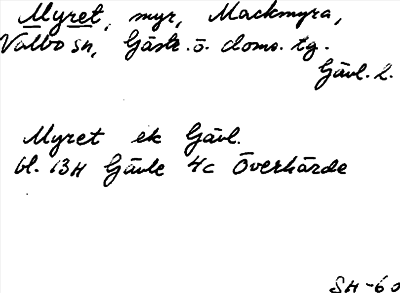 Myret, myr, Mackmyra,
Valbo sn, Gästr. ö. doms. tg.
Gävl. l.
Myret ek Gävl.
bl. 13H Gävle 4c Överhärde
SH-60